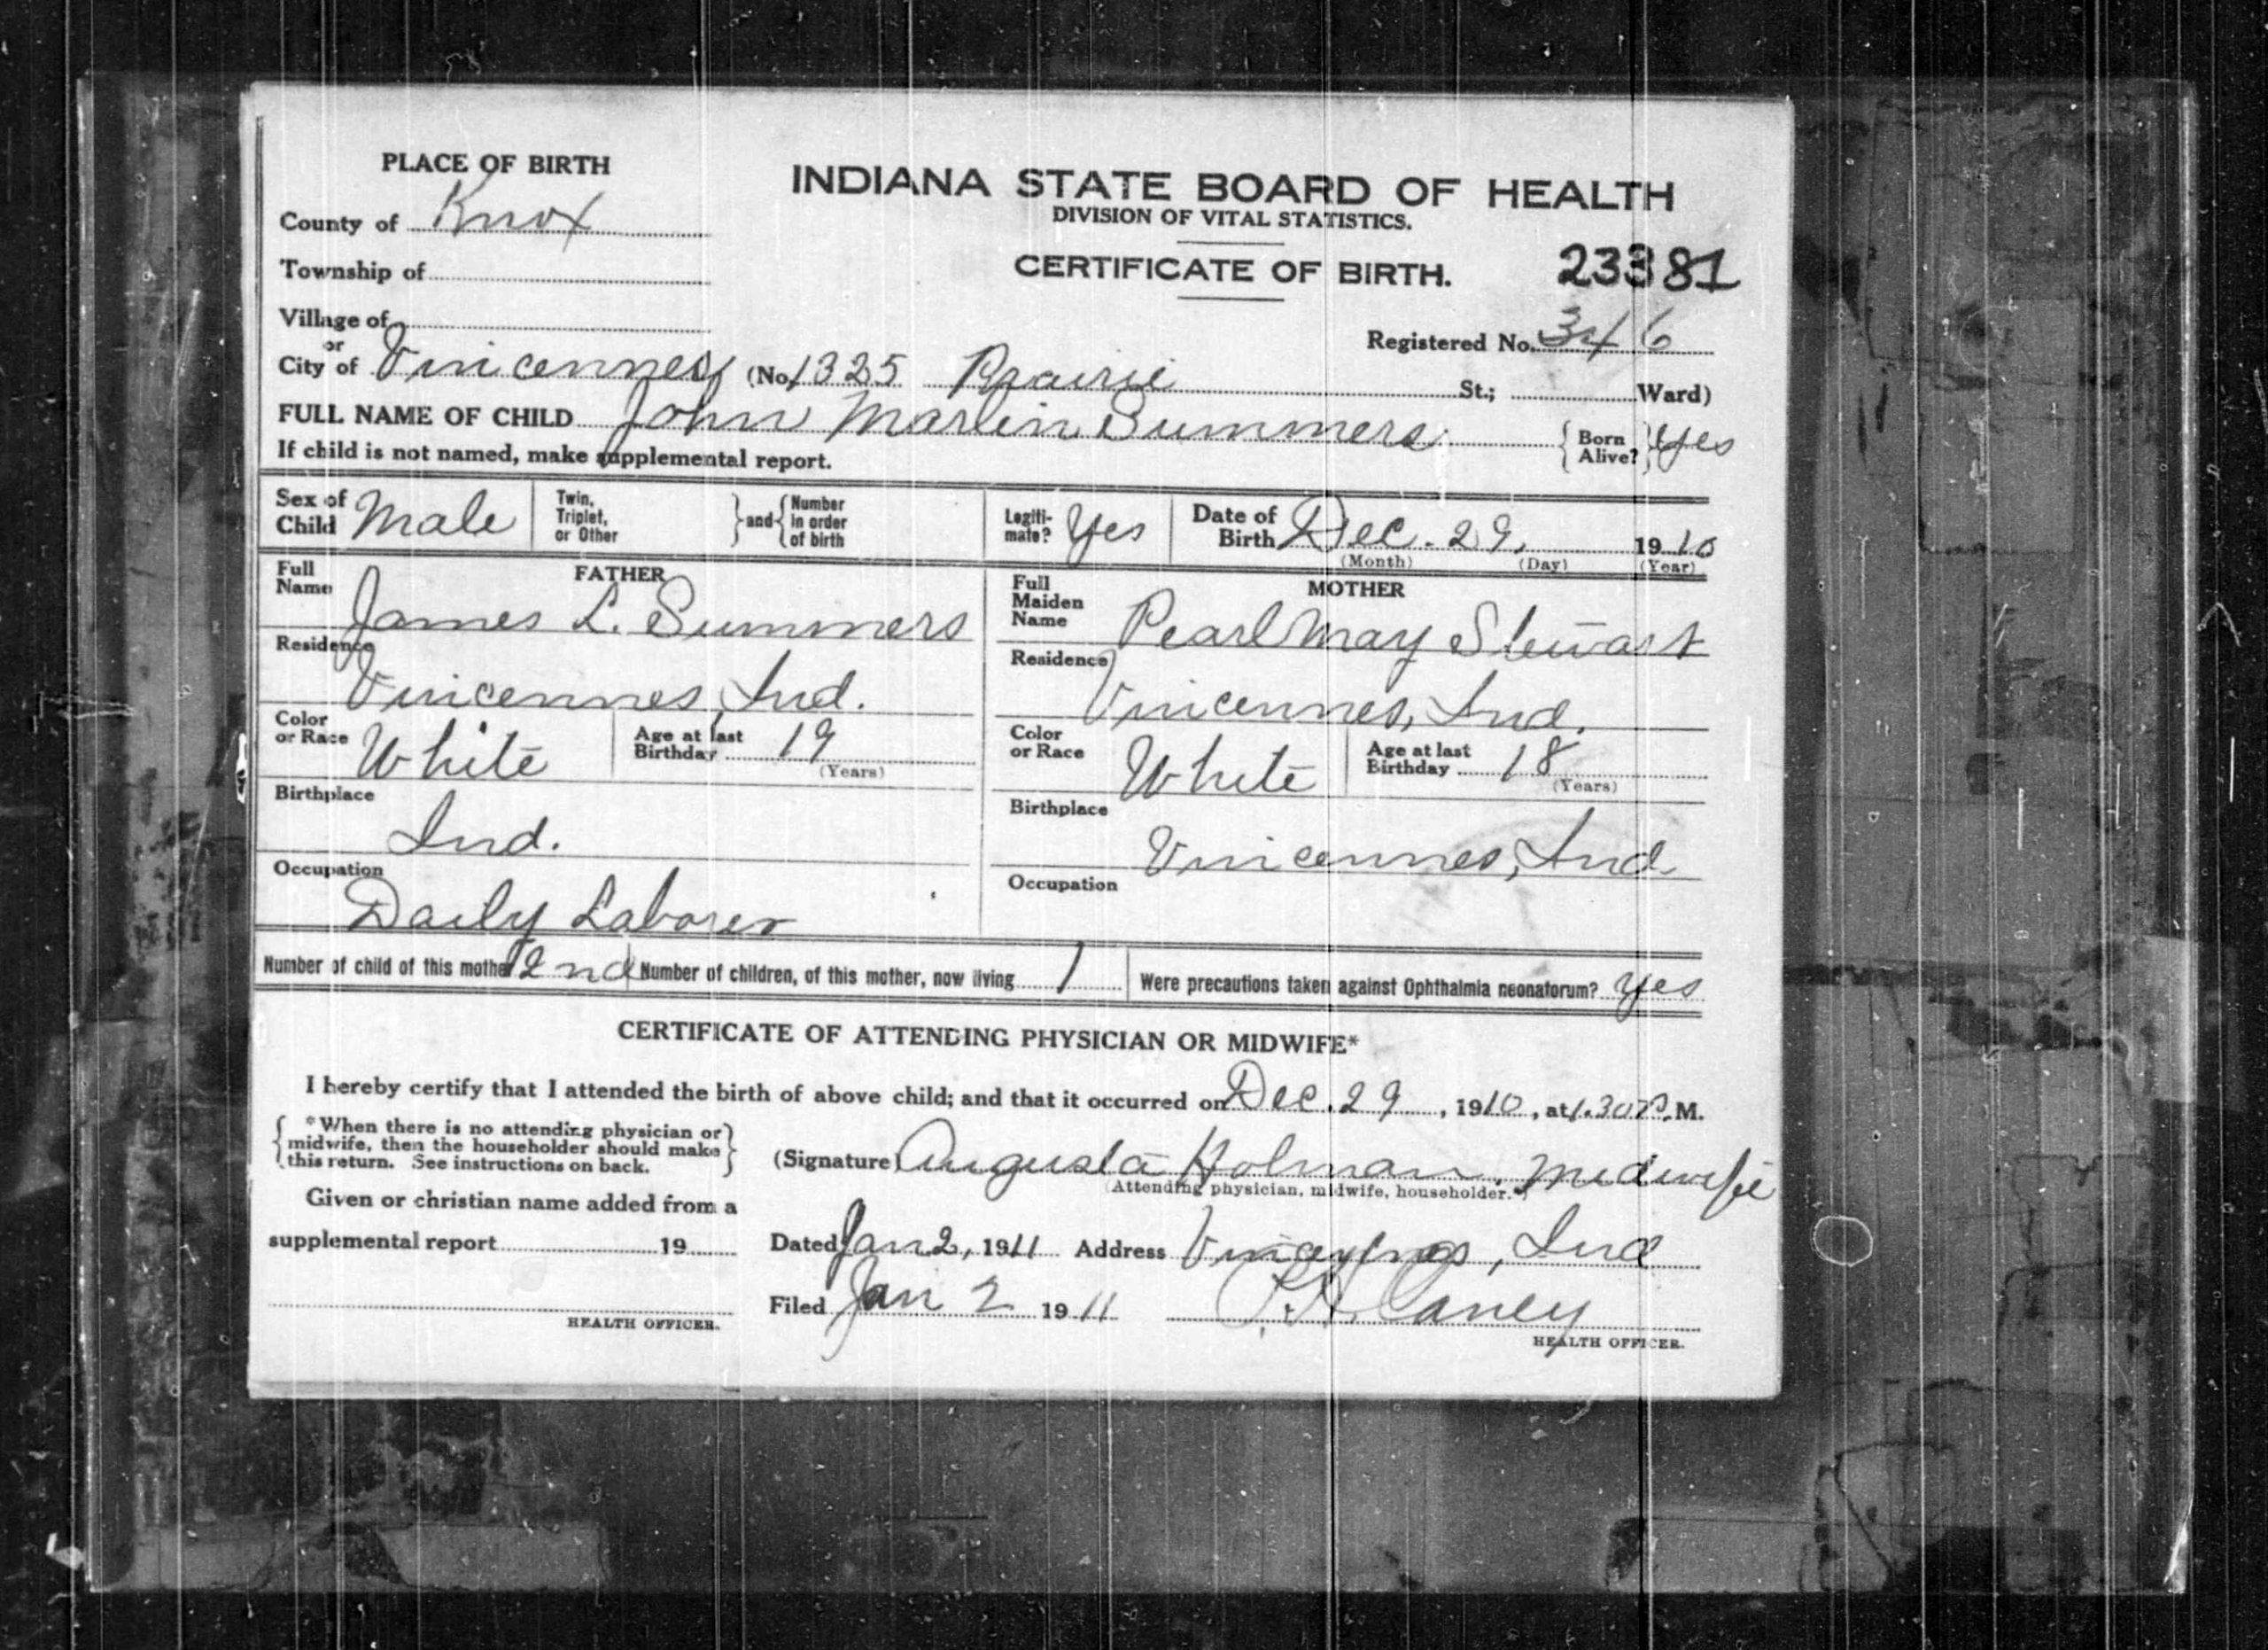 PLACE OF BIRTH
INDIANA STATE BOARD OF HEALTH
DIVISION OF VITAL STATISTICS.
County of Knox
CERTIFICATE OF BIRTH. 23381
Township of
Village of
Registered No. 346
or
City of Vincennes (No. 1325 Prairie St.; Ward)
FULL NAME OF CHILD John Marlin Summers { Born Alive? } Yes
If child is not named, make supplemental report.
Sex of Child Male Twin, Triplet, or Other } and { Number in order of birth Legiti-mate? Yes Date of Birth Dec. 29, 1910
(Month) (Day) (Year)
FATHER
Full Name James L. Summers
Residence
Vincennes, Ind.
Color or Race White Age at last Birthday 19
(Years)
Birthplace
Ind.
Occupation
Daily Laborer
MOTHER
Full Maiden Name Pearl May Stewart
Residence
Vincennes, Ind.
Color or Race White Age at last Birthday 18
(Years)
Birthplace
Vincennes, Ind.
Occupation
Number of child of this mother 2nd Number of children, of this mother, now living 1 Were precautions taken against Ophthalmia neonatorum? Yes
CERTIFICATE OF ATTENDING PHYSICIAN OR MIDWIFE*
I hereby certify that I attended the birth of above child; and that it occurred on Dec. 29, 1910, at 1.30 P. M.
{ *When there is no attending physician or
midwife, then the householder should make
this return. See instructions on back. }
(Signature) Augusta Holman. Midwife
(Attending physician, midwife, householder.*)
Given or christian name added from a
supplemental report 19
Dated Jan 2, 1911 Address Vincennes, Ind
Filed Jan 2 1911
HEALTH OFFICER.
HEALTH OFFICER.